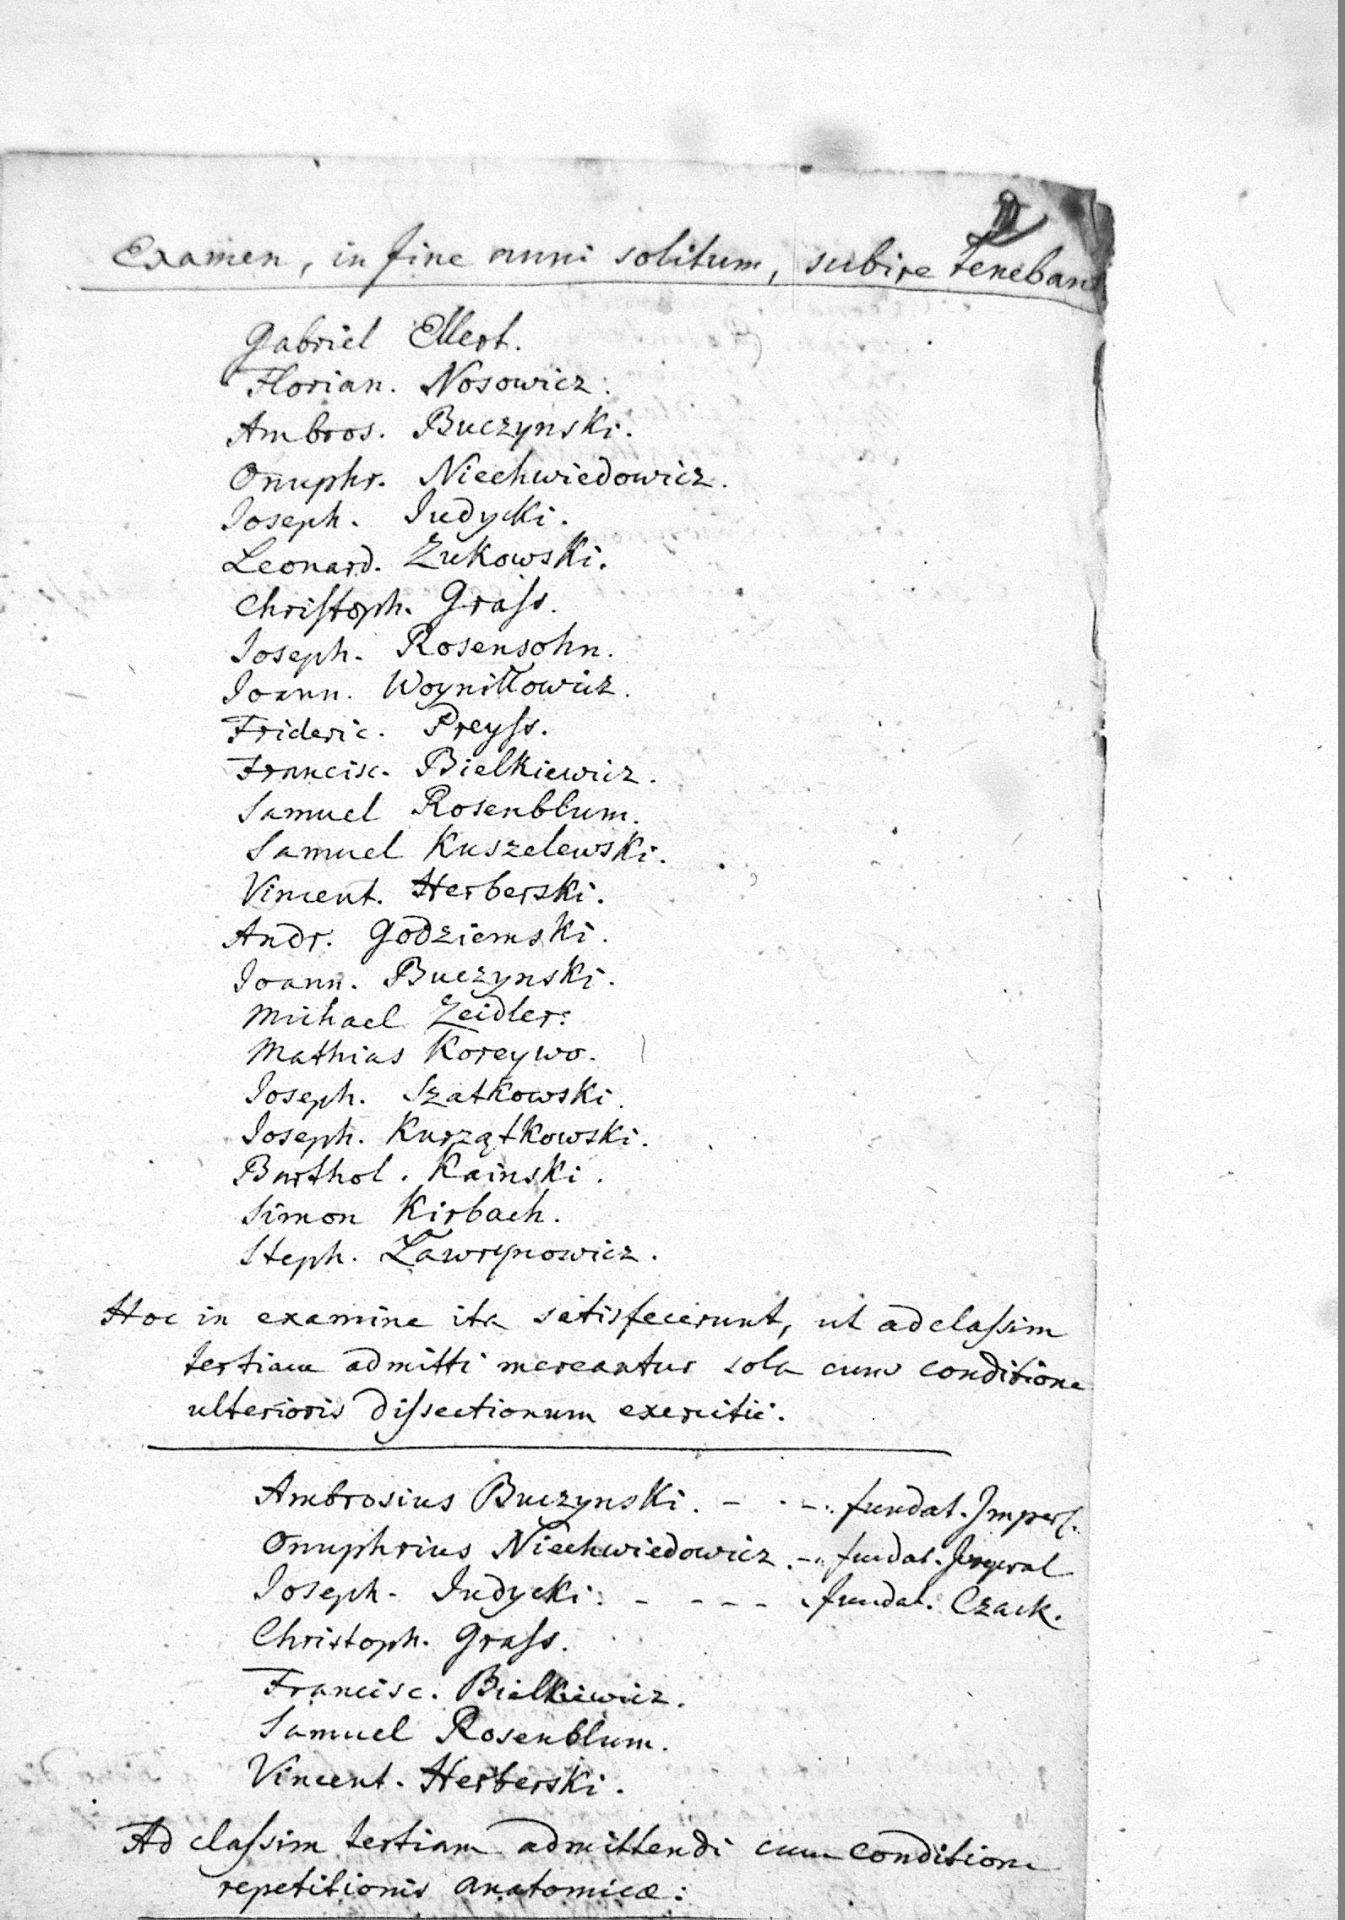 Examen, in fine anni solitum, subire tenebant
Gabriel Ellert.
Florian. Nosowicz.
Ambros. Buczynski.
Onuphr. Niechwiedowicz.
Joseph. Judycki.
Leonard. Zukowski.
Christoph. Grass.
Joseph. Rosensohn.
Joann. Woyniłłowicz.
Frideric. Preyss.
Francisc. Bielkiewicz.
Samuel Rosenblum.
Samuel Kuszelewski.
Vincent. Herberski.
Andr. Godziemski.
Joann. Buczynski.
Michael Zeidler.
Mathias Koreywo.
Joseph. Szatkowski.
Joseph. Kurzątkowski.
Barthol. Kainski.
Simon Kirbach.
Steph. Ławrynowicz.
Hoc in examine ita satisfecerunt, ut ad classim
tertiam admitti mereantur sola cum conditione
ulterioris dissectionum exercitii.
Ambrosius Buczynski. - - - fundat. Imper.
Onuphrius Niechwiedowicz. - fundat. Imperal
Joseph. Judycki. - - - - fundat. Czack.
Christoph. Grass.
Francisc. Bielkiewicz.
Samuel Rosenblum.
Vincent. Herberski.
Ad classim tertiam admittendi cum conditione
repetitionis anatomicæ: